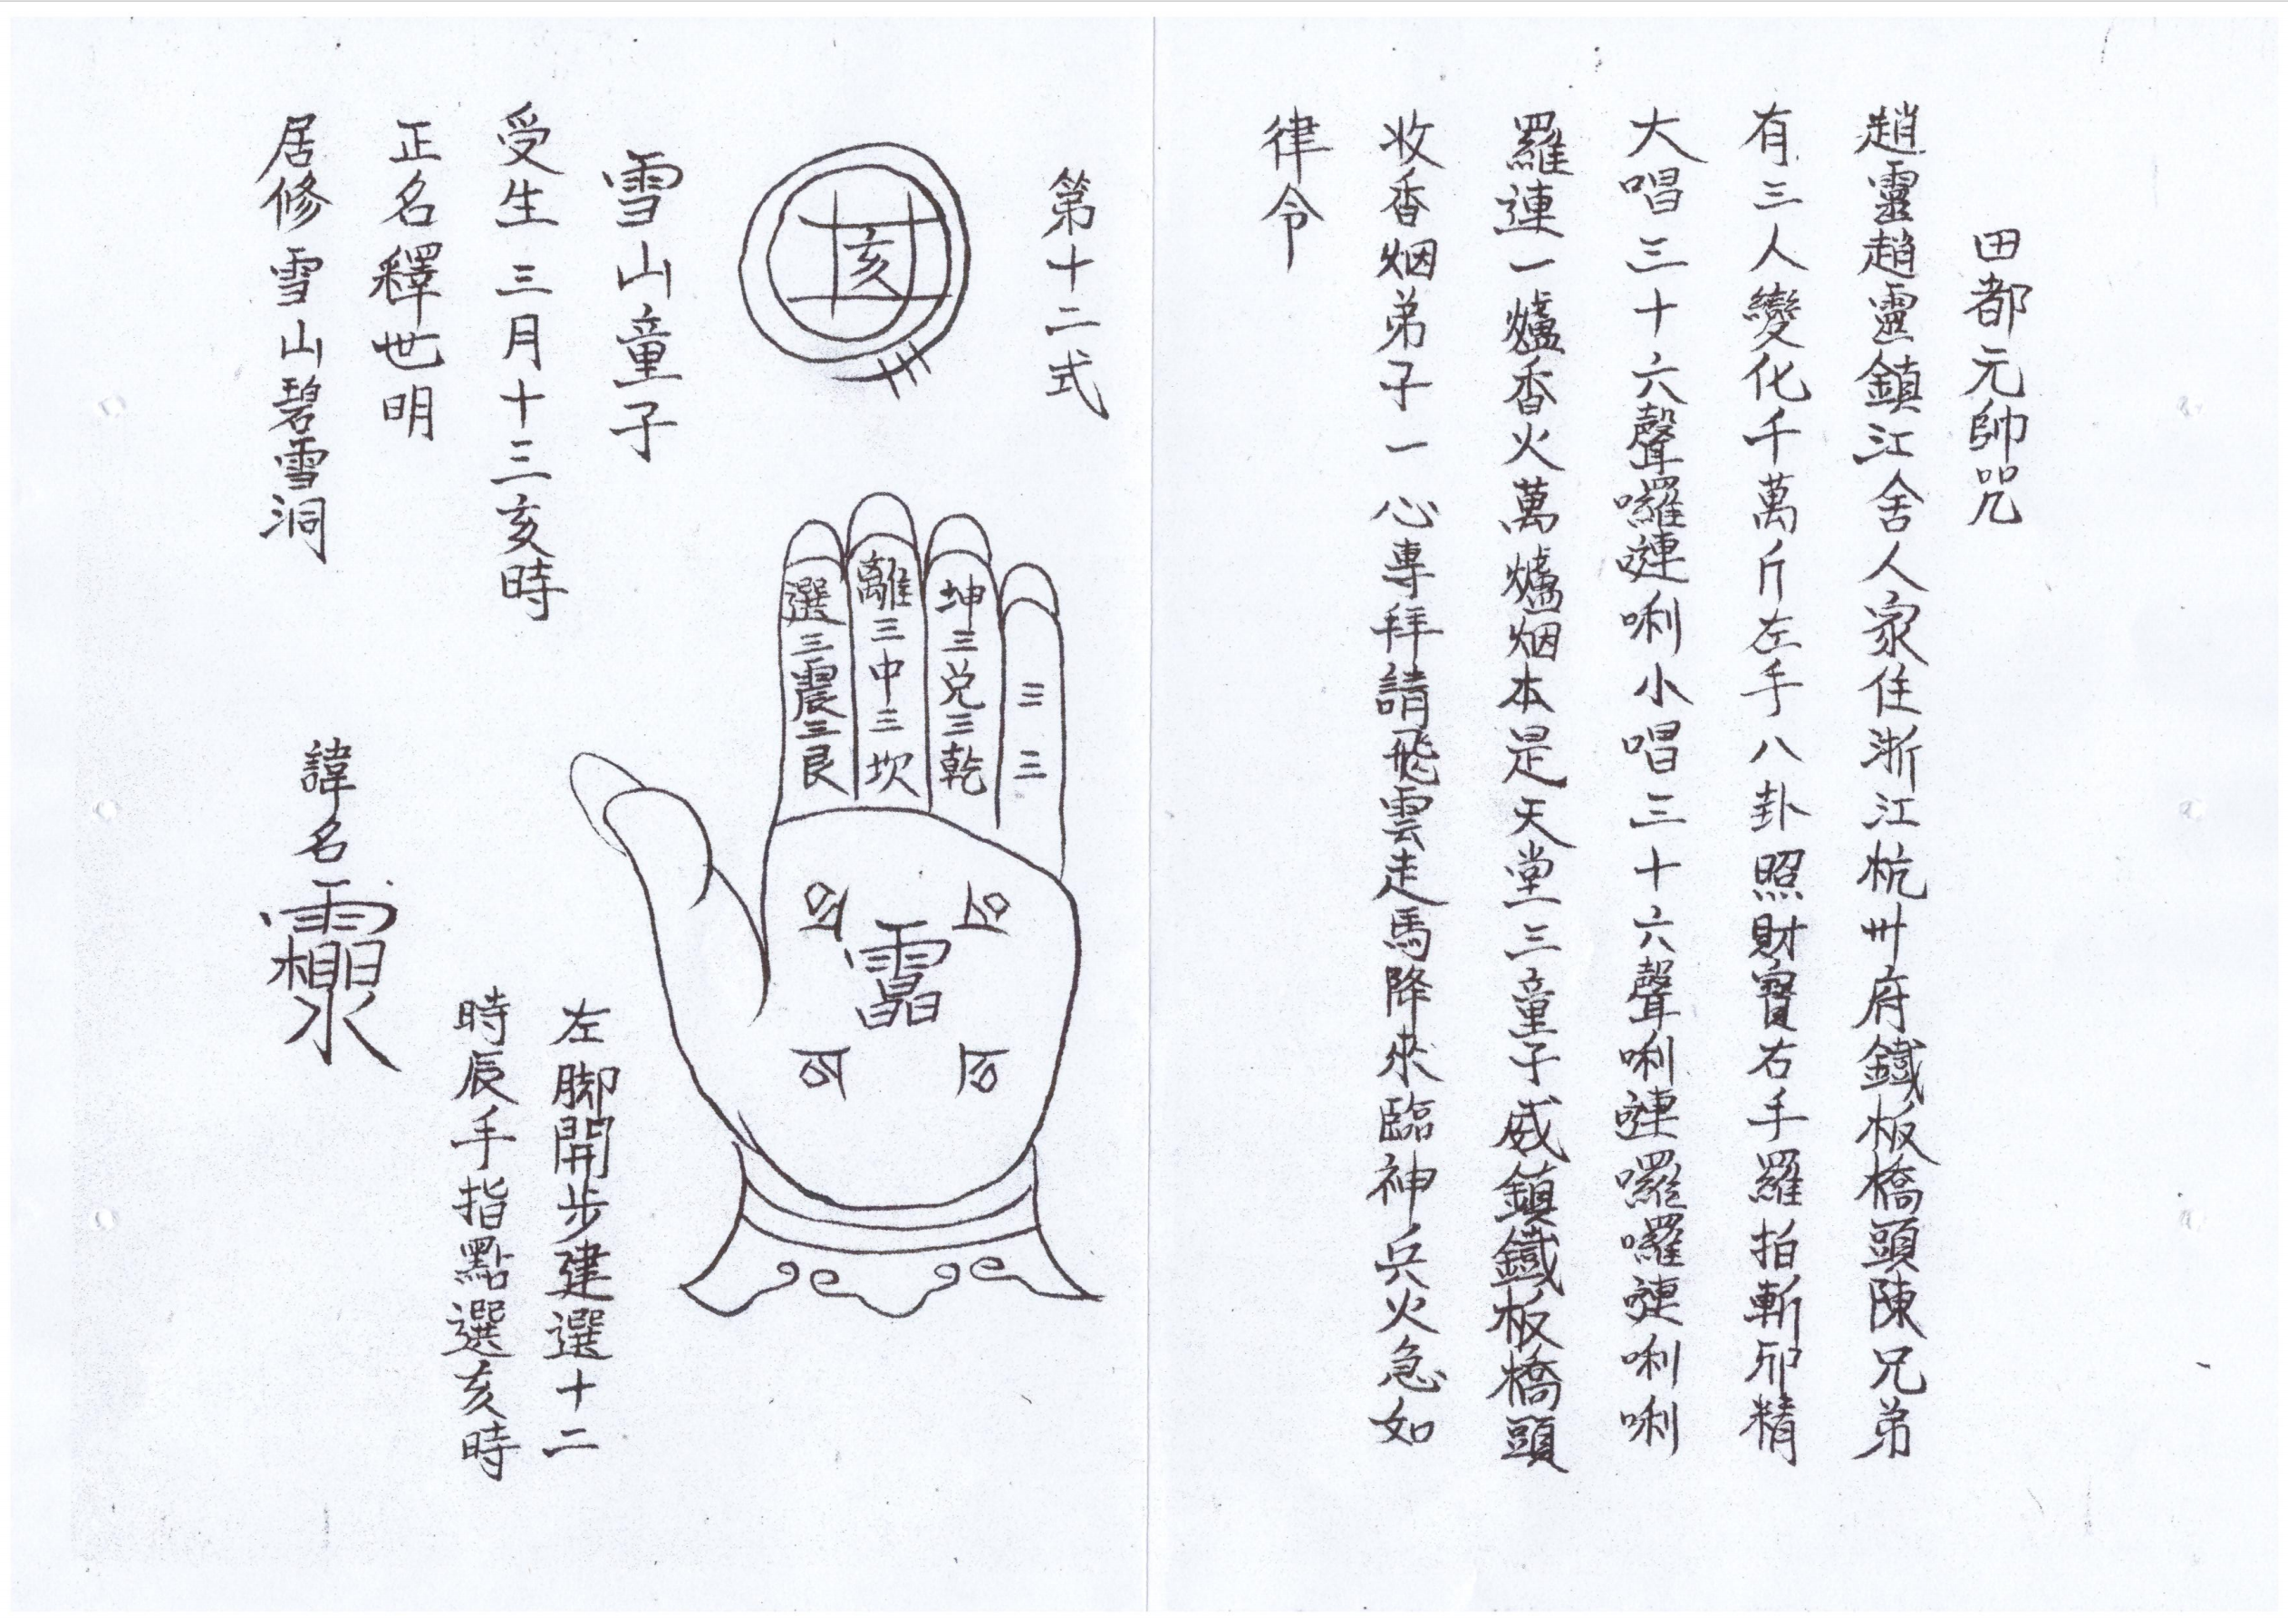 田都元帥咒
趙靈趙靈鎮江舍人家住浙江杭州府鐵板橋頭陳兄弟
有三人變化千萬斤左手八卦照財寶右手羅拍斬邪精
大唱三十六聲囉嗹唎小唱三十六聲唎嗹囉囉嗹唎唎
羅連一爐香火萬爐烟本是天堂三童子威鎮鐵板橋頭
收香烟弟子一心專拜請飛雲走馬降來臨神兵火急如
律令
第十二式
亥
坤三兌三乾
離三中三坎
選三震三艮
三三
雪山童子
受生三月十三亥時
正名釋世明
居修雪山碧雲洞
左脚開步建選十二
時辰手指點選亥時
諱名